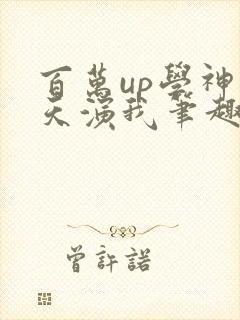 百萬up學神
天演我筆趣
曾許諾